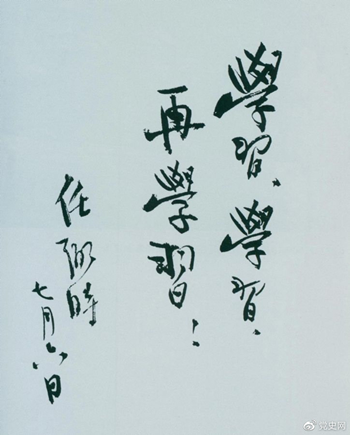 學習、學習、
再學習！
任弼時
七月六日
@党史网